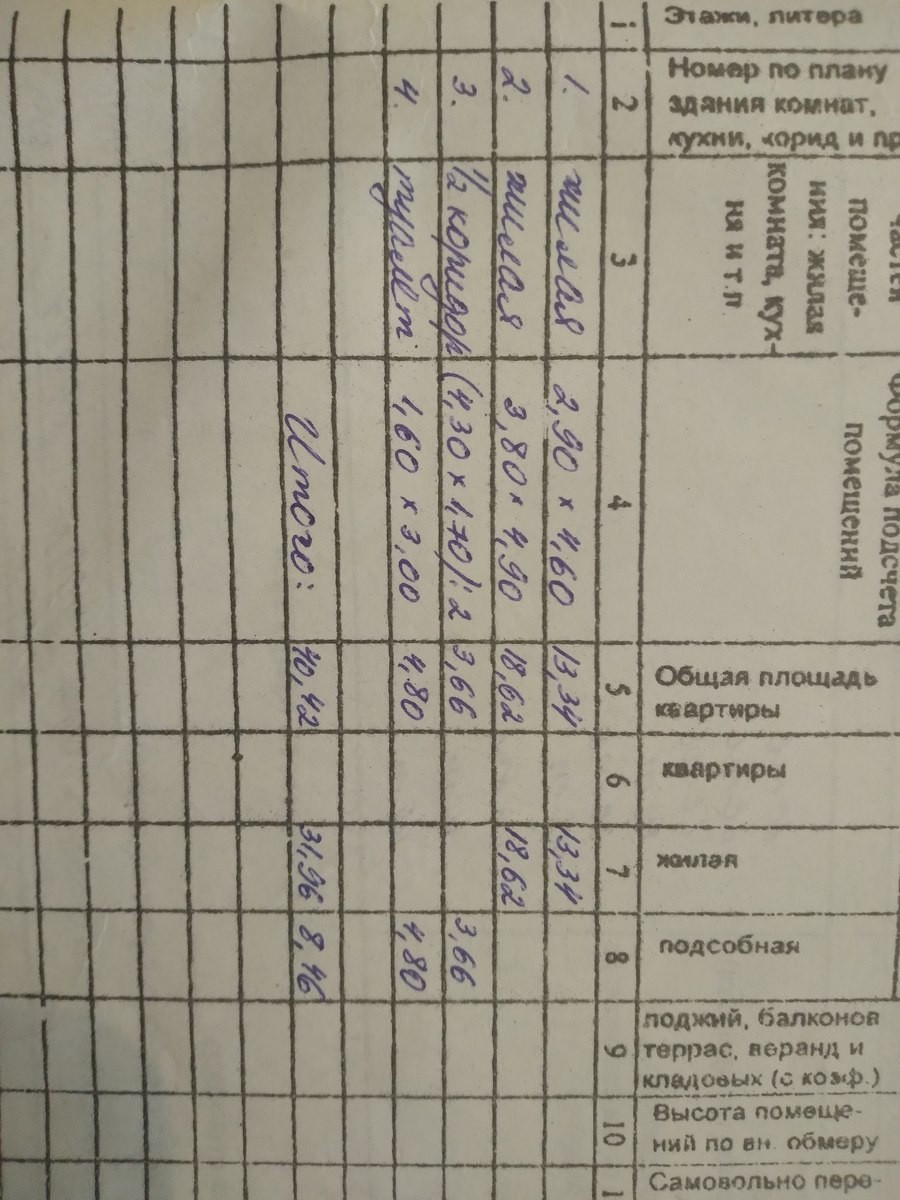 Этажи, литера
Номер по плану
здания комнат,
кухни, корид и пр
частей
помеще-
ния: жилая
комната, кух-
ня и т.п
Формула подсчета
помещений
Общая площадь
квартиры
квартиры
жилая
подсобная
лоджий, балконов
террас, веранд и
кладовых (с коэф.)
Высота помеще-
ний по вн. обмеру
Самовольно пере-
1 2 3 4 5 6 7 8 9 10 1
1. жилая 2,90 x 4,60 13,34 13,34
2. жилая 3,80 x 4,90 18,62 18,62
3. 1/2 коридор (4,30 x 1,70):2 3,66 3,66
4. туалет 1,60 x 3,00 4,80 4,80
Итого: 40,42 31,96 8,46